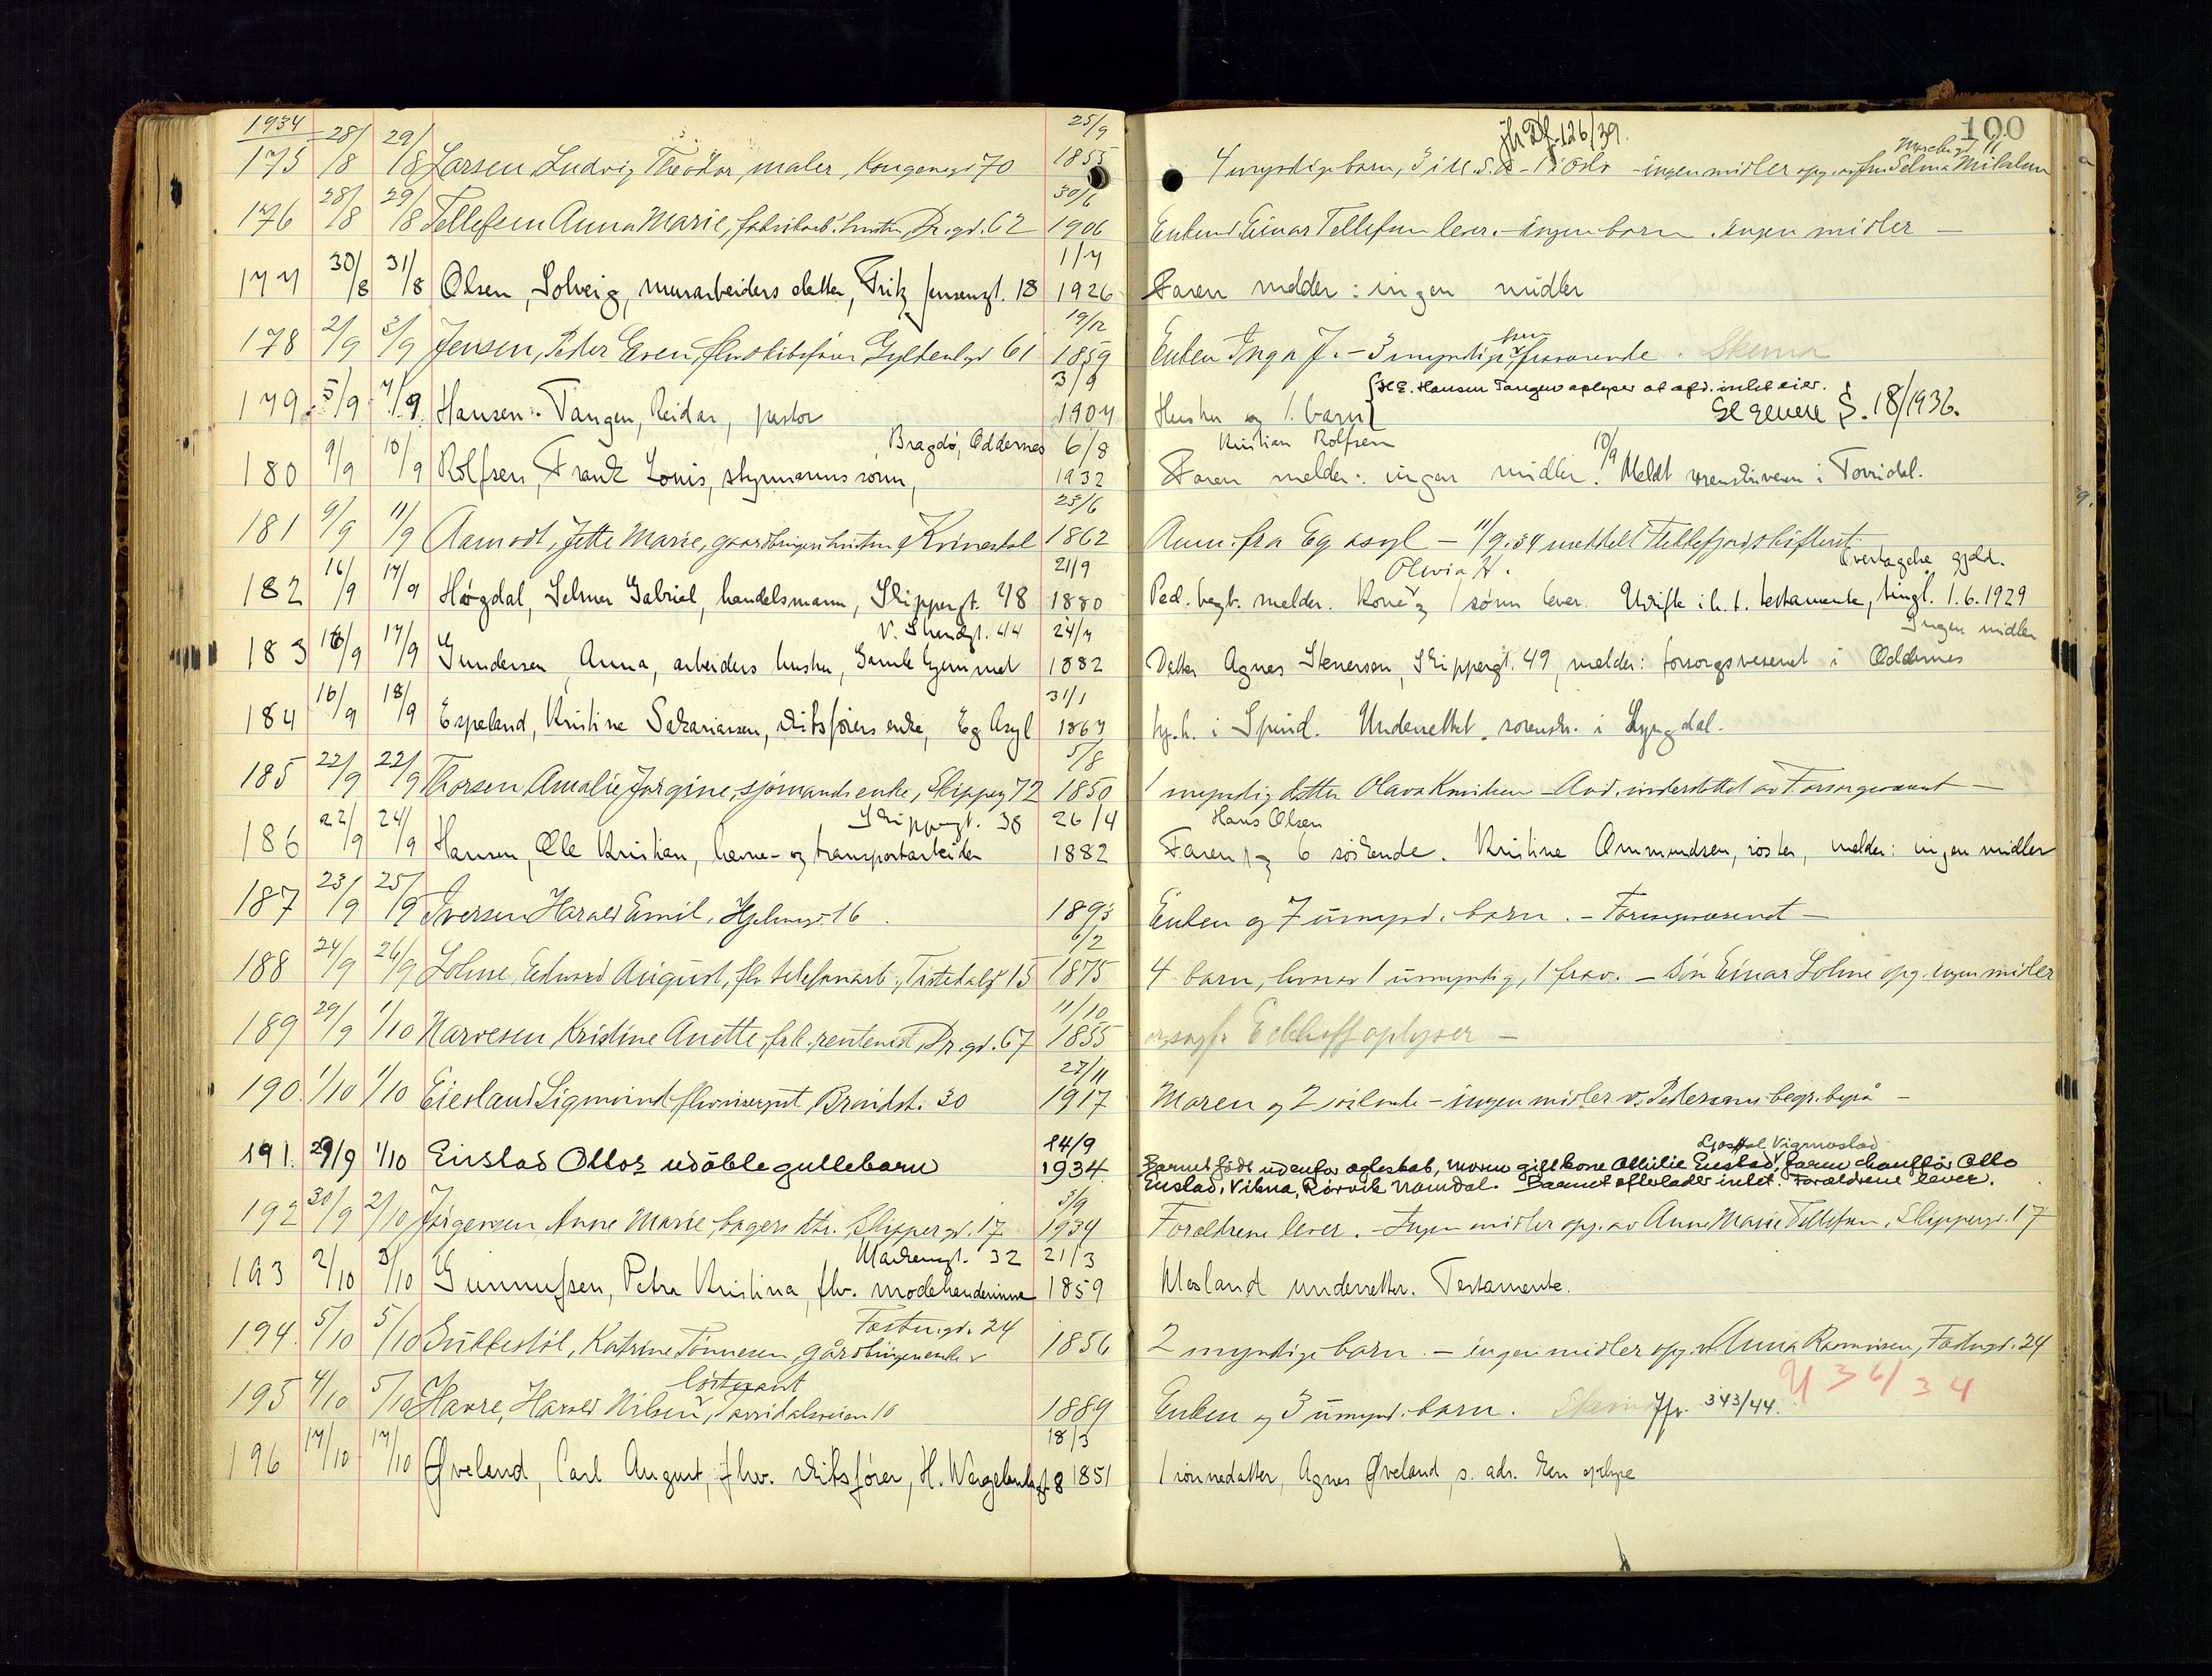 1934
100
jfr Df. 126/39.
175 28/8 29/8 Larsen Ludvig Theodor, maler, Kongensgt 70 25/9 1855
4 myndige barn, 3 i U.S.A - 1 i Oslo - ingen midler opg. av fru Selma
176 28/8 29/8 Tellefsen Anna Marie, fabrikarb. hustru, Dr.gd. 62 30/6 1906
Enkem. Einar Tellefsen lever. - ingen barn. ingen midler -
177 30/8 31/8 Olsen, Solveig, murarbeiders datter, Fritz Jensensgt. 18 1/7 1926
Faren melder: ingen midler
178 2/9 3/9 Jensen, Peder Even, fhv skibsfører Gyldenløvsgd 61 19/12 1859
Enken Inga J. - 3 myndige fraværende. Skema
179 5/9 7/9 Hansen-Tangen, Reidar, pastor 3/9 1907
Hustru og 1 barn { H.E. Hansen Tangen oplyser at afd. intet eier.
Se senere S. 18/1936.
180 9/9 10/9 Rolfsen, Frank Louis, styrmanns sønn, Bragdø, Oddernes 6/8 1932
Kristian Rolfsen
Faren melder: ingen midler. 10/9 Meldt sorenskriveren i Torridal.
181 9/9 11/9 Aamodt, Jette Marie, gaardbrugerhustru, Kvinesdal 25/6 1862
Anm. fra Eg asyl - 11/9.34 meddelt Fleckefjord skifterett
182 16/9 17/9 Høgdal, Selmer Gabriel, handelsmann, Skippergt. 48 21/9 1880
Olivia H. Overtagelse gjeld.
Ped. begr.b. melder. Kone og 1 sønn lever. Uskifte i h. t. testamente, tingl. 1.6.1929
183 16/9 17/9 Gundersen, Anna, arbeiders hustru, Gamle hjemmet V. Strandgt. 44 24/7 1882
Ingen midler
Datter Agnes Stenersen, Skippergt. 49, melder: forsorgsvesenet i Oddernes
184 16/9 18/9 Espeland, Kristine Sakariassen, skibsførers enke, Eg Asyl 31/1 1867
hj.h. i Spind. Underrettet sorenskr. i Lyngdal.
185 22/9 22/9 Thorsen Amalie Jørgine, sjømands enke, Skippergt 72 5/8 1850
1 myndig datter Olava Knudsen - Avd. understøttet av Forsorgsvesenet -
186 22/9 24/9 Hansen, Ole Kristian, havne- og transportarbeider Skippergt. 38 26/4 1882
Hans Olsen
Faren og 6 søskende. Kristine Ommundsen, søster, melder: ingen midler
187 23/9 25/9 Iversen Harald Emil, 16 1893
Enken og 7 umynd. barn. - Forsorgsvesenet -
188 24/9 26/9 Lohne Edvard August, fhv telefonarb., Tostedalsgt 15 6/2 1875
4 barn, hvorav 1 umyndig, 1 frav. - Søn Einar Lohne opg. ingen midler
189 29/9 1/10 Narvesen Kristine Anette, frk. rentenist, Dr.gd. 67 11/10 1855
Eckhoff oplyser -
190 1/10 1/10 Eieland Sigmund 30 27/11 1917
Moren og 2 søskende - ingen midler v. Pedersens begr.byrå -
191. 29/9 1/10 Einstad Ottos udøbte guttebarn 14/9 1934
Barnet født udenfor egteskab, moren gift kone Ottilie Einstad, Vigmostad faren chauffør Otto
Einstad, Vikna, Rørvik Namdal. Barnet efterlader intet. Forældrene lever.
192 30/9 2/10 Jørgensen Anne Marie, bagers dtr. Skippergd. 17 5/9 1934
Foreldrene lever. - Ingen midler opg. av Anne Marie Tellefsen, Skippergt. 17
193 2/10 3/10 Gunnufsen, Petra Kristina, fhv. modehandlerinne Markensgt. 32 21/3 1859
Mosland underretter. Testamente.
194. 5/10 5/10 Gullestøl, Katrine Tønnesen, gårdbrugerenke Festn.gd. 24 1856
2 myndige barn. - ingen midler opg. v. Anna Rasmussen, Festn.gd. 24
195 4/10 5/10 Havre, Harald Nilsen, Torridalsveien 10 1889
Enken og 3 umynd. barn. Skema Jfr. 343/44. U 36/34
196 17/10 17/10 Øveland, Carl August, fhv. skibsfører, H. Wergelandsgt. 8 18/3 1851
1 sønnedatter, Agnes Øveland, s. adr. kan oplyse